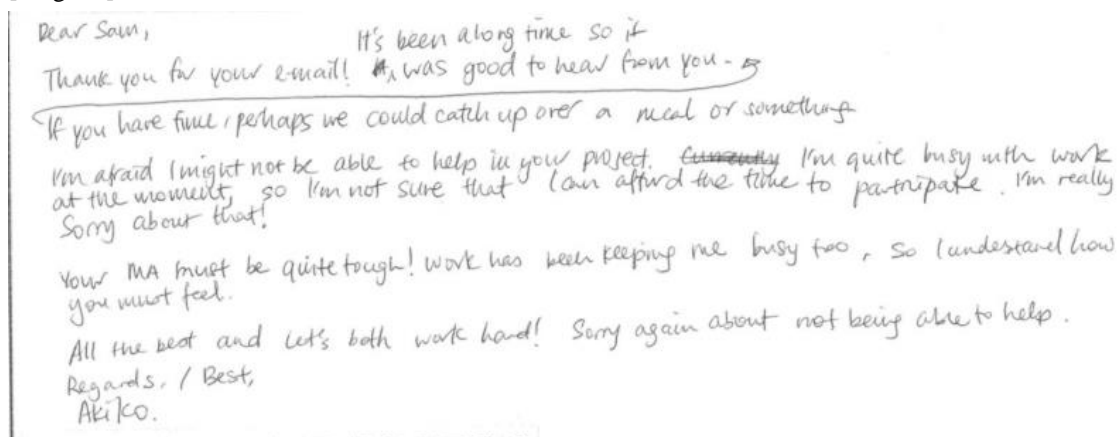 Dear Sam,
It's been along time so it
Thank you for your e-mail! was good to hear from you.
If you have time, perhaps we could catch up over a meal or something
I'm afraid I might not be able to help in your project. Currently I'm quite busy with work
at the moment, so I'm not sure that I can afford the time to partripate. I'm really
Sorry about that!
Your MA must be quite tough! Work has been keeping me busy too, so I undestand how
you must feel.
All the best and let's both work hard! Sorry again about not being able to help.
Regards, / Best,
Akiko.